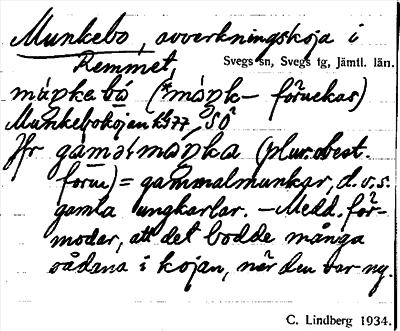 Munkebo, avverkningskoja i
Remmet, Svegs sn, Svegs tg, Jämtl. län.
måŋke bå (*måŋk- förvekas)
Munkebokojan k577 SO
Jfr gamalmåŋka (plur. obest.
form) = gammalmunkar, d.v.s.
gamla ungkarlar. – Medd. för-
modar, att det bodde många
sådana i kojan, när den var ny.
C. Lindberg 1934.